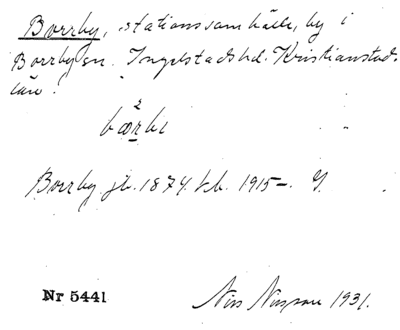 Borrby, stationssamhälle, by i
Borrby sn. Ingelstads hd. Kristianstads
län.
bærbi
Borrby jb. 1874. kb. 1915–. G.
Nr 5441
Nils Nilsson 1931.